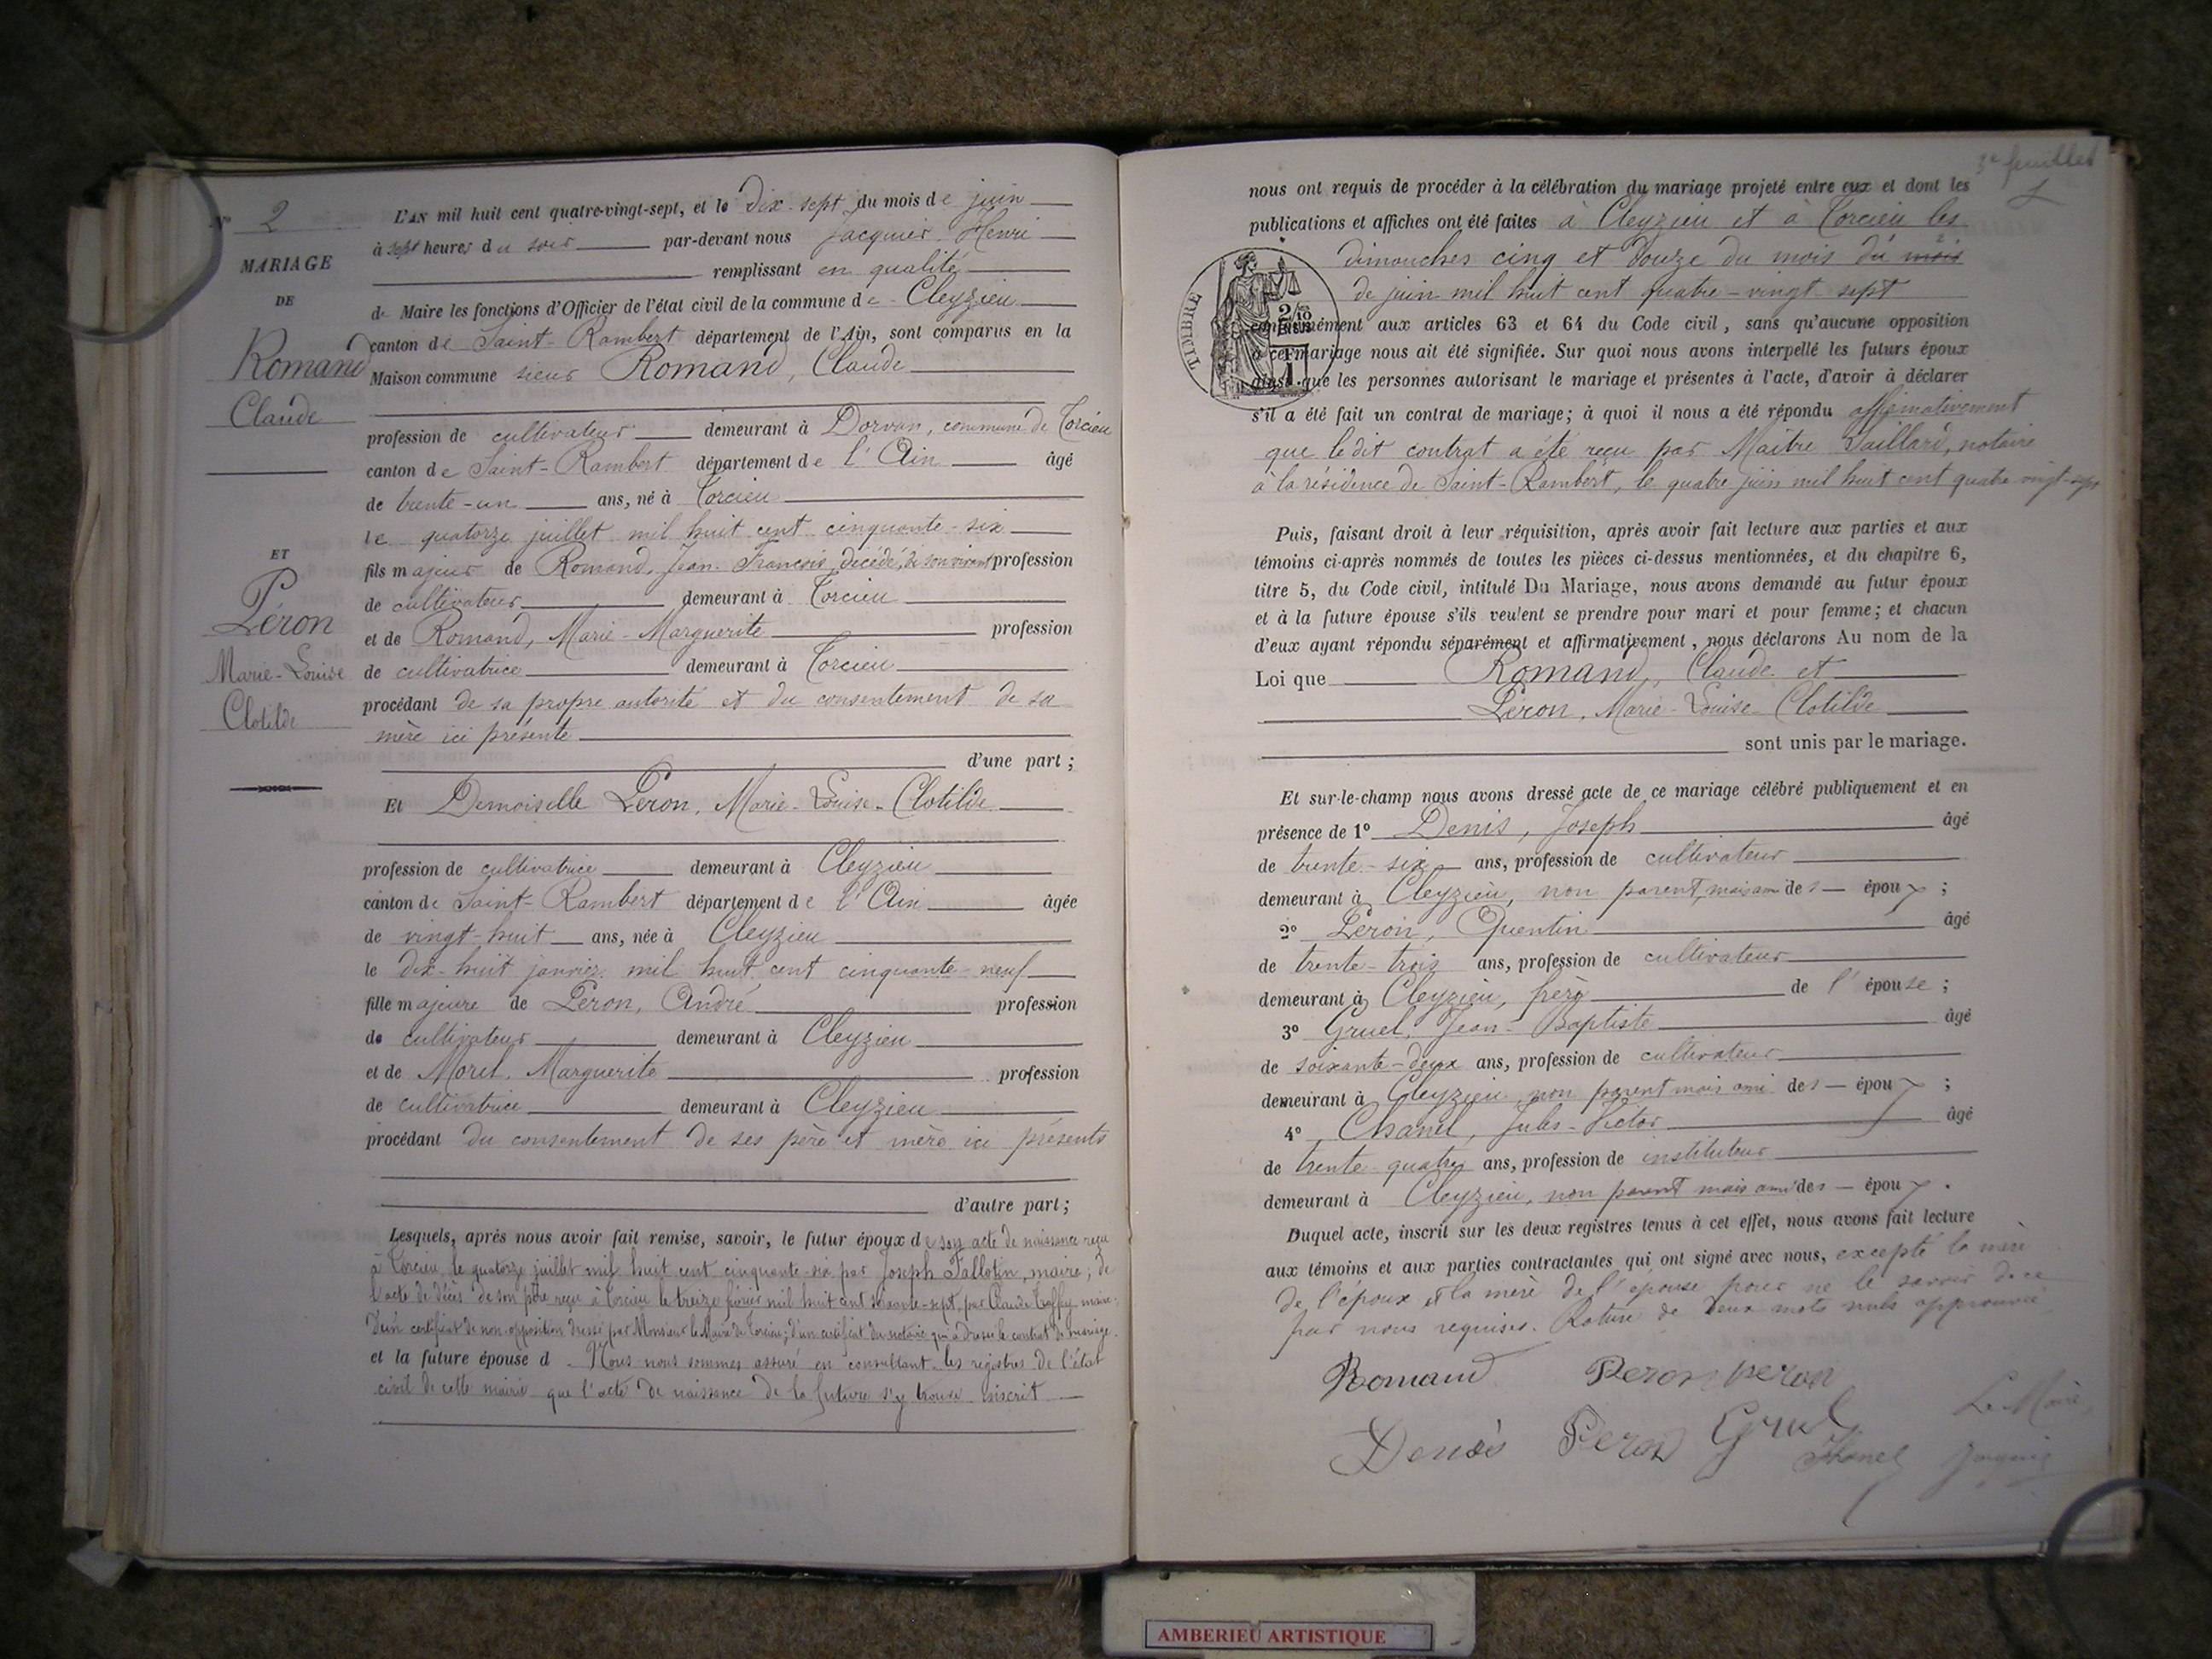 N° 2
MARIAGE
DE
Romand
Claude
ET
Péron
Marie-Louise
Clotilde
L'AN mil huit cent quatre-vingt-sept, et le dix-sept du mois de juin
à sept heures du soir par-devant nous Jacquier Henri
remplissant en qualité
de Maire les fonctions d'Officier de l'état civil de la commune de Cleyzieu
canton de Saint-Rambert département de l'Ain, sont comparus en la
Maison commune sieur Romand, Claude
profession de cultivateur demeurant à Dorvan, commune de Torcieu
canton de Saint-Rambert département de l'Ain âgé
de trente-un ans, né à Torcieu
le quatorze juillet mil huit cent cinquante-six
fils majeur de Romand, Jean-François, décédé, de son vivant profession
de cultivateur demeurant à Torcieu
et de Romand, Marie-Marguerite profession
de cultivatrice demeurant à Torcieu
procédant de sa propre autorité et du consentement de sa
mère ici présente
d'une part ;
Et Demoiselle Péron, Marie-Louise-Clotilde
profession de cultivatrice demeurant à Cleyzieu
canton de Saint-Rambert département de l'Ain âgée
de vingt-huit ans, née à Cleyzieu
le dix-huit janvier mil huit cent cinquante-neuf
fille majeure de Péron, André profession
de cultivateur demeurant à Cleyzieu
et de Morel, Marguerite profession
de cultivatrice demeurant à Cleyzieu
procédant du consentement de ses père et mère ici présents
d'autre part ;
Lesquels, après nous avoir fait remise, savoir, le futur époux de son acte de naissance reçu
à Torcieu le quatorze juillet mil huit cent cinquante-six par Joseph Tallotin, maire ; de
l'acte de décès de son père reçu à Torcieu le treize février mil huit cent soixante-sept, par Claude maire ;
d'un certificat de non-opposition dressé par Monsieur le Maire de Torcieu ; d'un certificat du notaire qui a dressé le contrat de mariage.
et la future épouse d Nous nous sommes assuré en consultant les registres de l'état
civil de cette mairie que l'acte de naissance de la future s'y trouve inscrit
3e feuillet
nous ont requis de procéder à la célébration du mariage projeté entre eux et dont les
publications et affiches ont été faites à Cleyzieu et à Torcieu les
dimanches cinq et douze du mois du mois
de juin mil huit cent quatre-vingt-sept
TIMBRE
2/10
EN SUS
1F
conformément aux articles 63 et 64 du Code civil, sans qu'aucune opposition
à ce mariage nous ait été signifiée. Sur quoi nous avons interpellé les futurs époux
ainsi que les personnes autorisant le mariage et présentes à l'acte, d'avoir à déclarer
s'il a été fait un contrat de mariage ; à quoi il nous a été répondu affirmativement
que ledit contrat a été reçu par Maître Saillard, notaire
à la résidence de Saint-Rambert, le quatre juin mil huit cent quatre-vingt-sept
Puis, faisant droit à leur réquisition, après avoir fait lecture aux parties et aux
témoins ci-après nommés de toutes les pièces ci-dessus mentionnées, et du chapitre 6,
titre 5, du Code civil, intitulé Du Mariage, nous avons demandé au futur époux
et à la future épouse s'ils veulent se prendre pour mari et pour femme ; et chacun
d'eux ayant répondu séparément et affirmativement, nous déclarons Au nom de la
Loi que Romand, Claude et
Péron, Marie-Louise Clotilde
sont unis par le mariage.
Et sur-le-champ nous avons dressé acte de ce mariage célébré publiquement et en
présence de 1° Denis, Joseph âgé
de trente-six ans, profession de cultivateur
demeurant à Cleyzieu, non parent, mais ami des époux ;
2° Péron, Quentin âgé
de trente-trois ans, profession de cultivateur
demeurant à Cleyzieu, frère de l'épouse ;
3° Gruel, Jean-Baptiste âgé
de soixante-deux ans, profession de cultivateur
demeurant à Cleyzieu, non parent mais ami des époux ;
4° Chanel, Jules-Victor âgé
de trente-quatre ans, profession de instituteur
demeurant à Cleyzieu, non parent mais ami des époux.
Duquel acte, inscrit sur les deux registres tenus à cet effet, nous avons fait lecture
aux témoins et aux parties contractantes qui ont signé avec nous, excepté la mère
de l'époux et la mère de l'épouse pour ne le savoir de ce
par nous requises. Rature de deux mots nuls approuvée
Romand Peron peron
Denis Peron Gruel Chanel
Le Maire,
Jacquier
AMBERIEU ARTISTIQUE